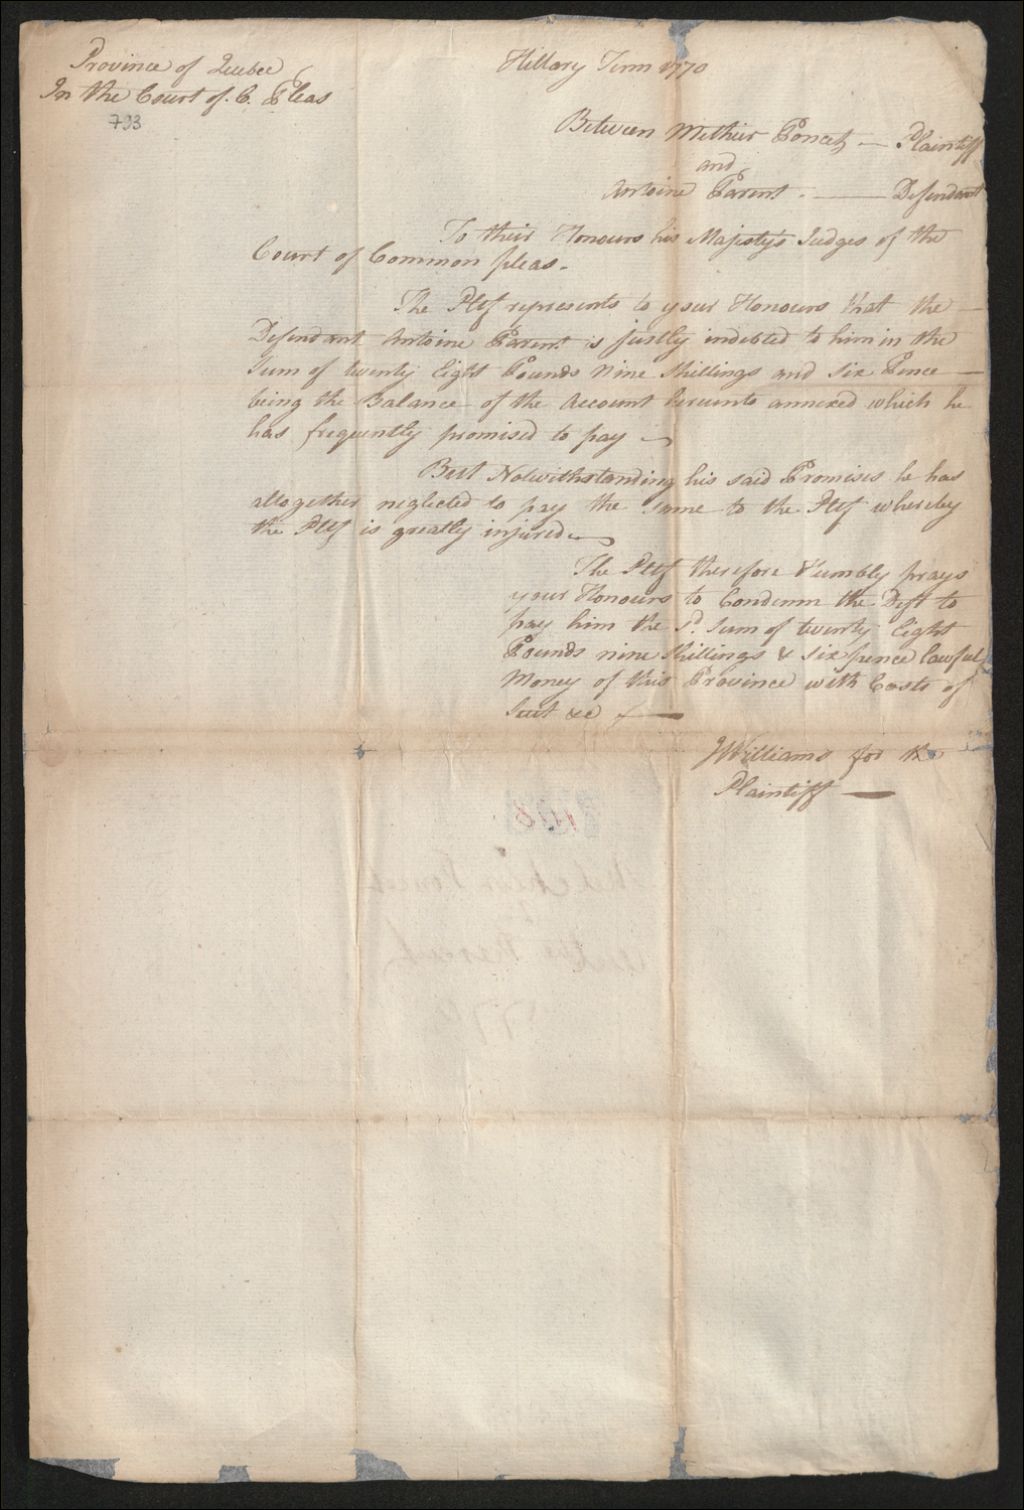 Province of Quebec
In the Court of C. Pleas
793
Hillary Term 1770
Between Methier Poncet — Plaintiff
and
Antoine Parent — Defendant
To their Honours his Majesty's Judges of the
Court of Common pleas.
The Pltf represents to your Honours that the —
Defendant Antoine Parent is justly indebted to him in the
Sum of twenty Eight Pounds Nine Shillings and Six Pence —
being the Balance of the Account hereunto annexed which he
has frequently promised to pay —
But Notwithstanding his said Promises he has
altogether neglected to pay the same to the Pltf whereby
the Pltf is greatly injured.—
The Pltf therefore Humbly prays
your Honours to Condemn the Deft to
pay him the sd. Sum of twenty Eight
Pounds nine Shillings & six pence lawful
Money of this Province with Costs of
Suit &c —
JWilliams for the
Plaintiff —